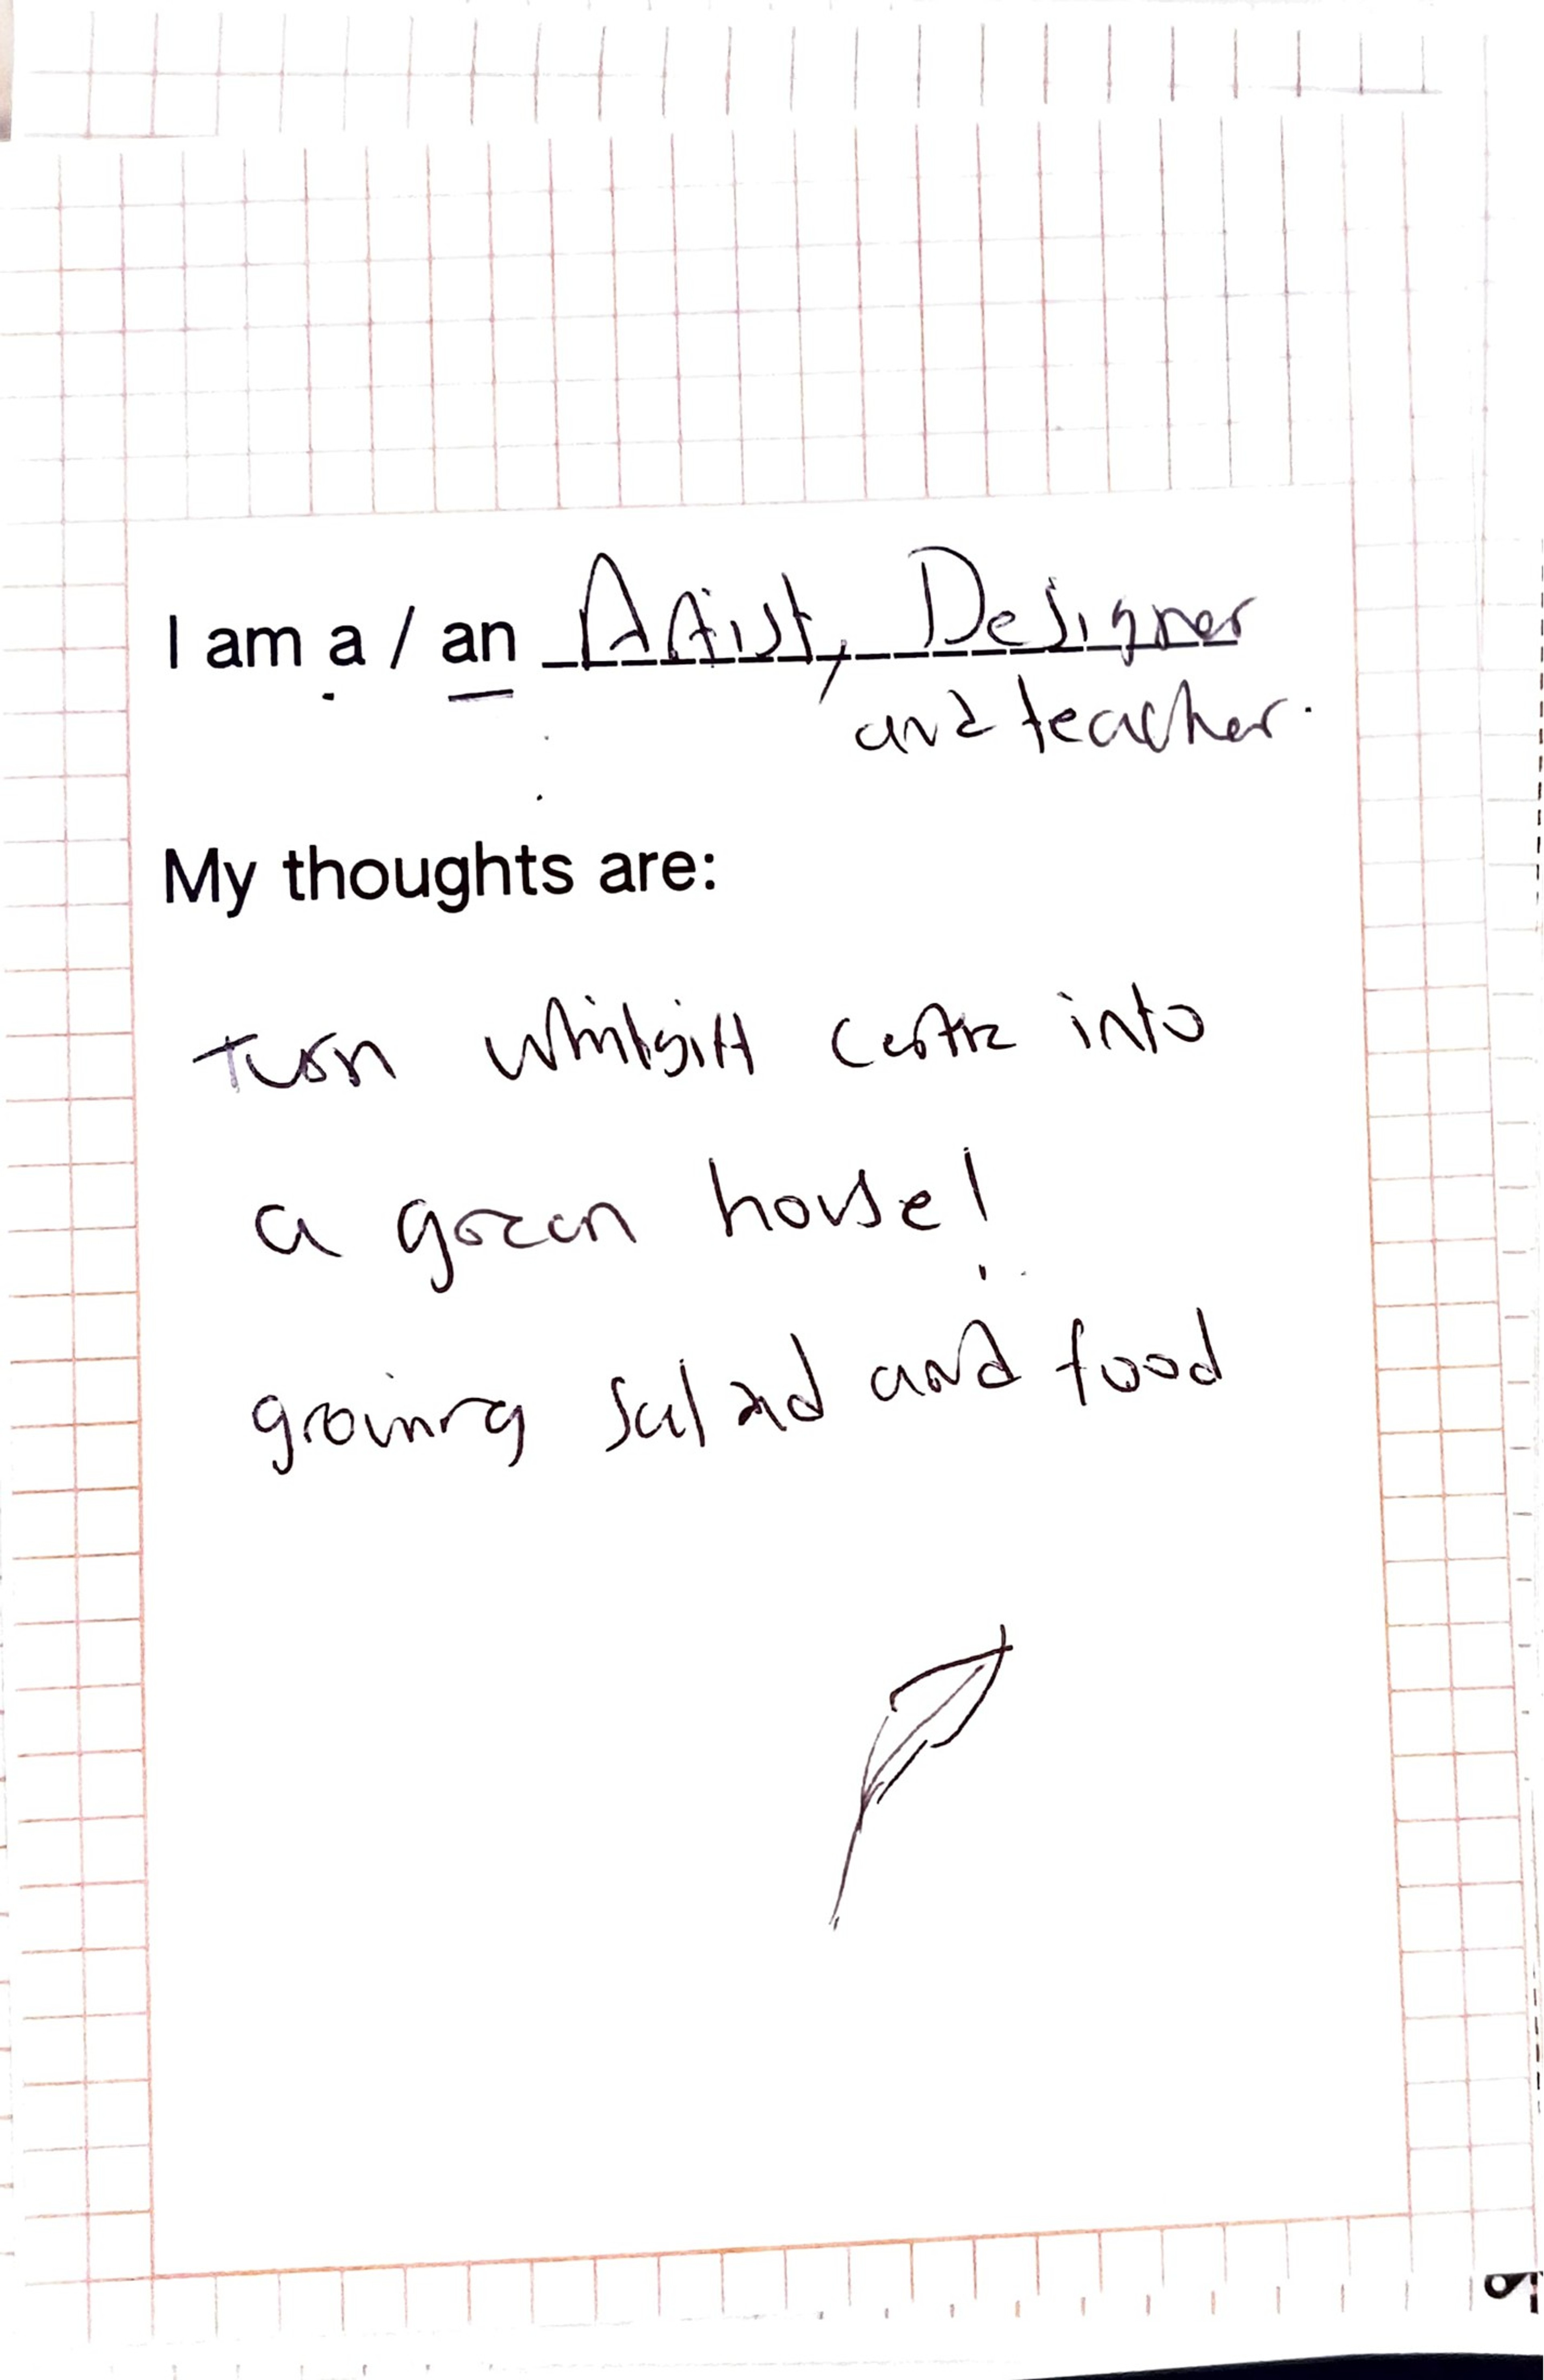 I am a / an Artist, Designer
and teacher.
My thoughts are:
Turn Whitgift Centre into
a green house!
growing salad and food